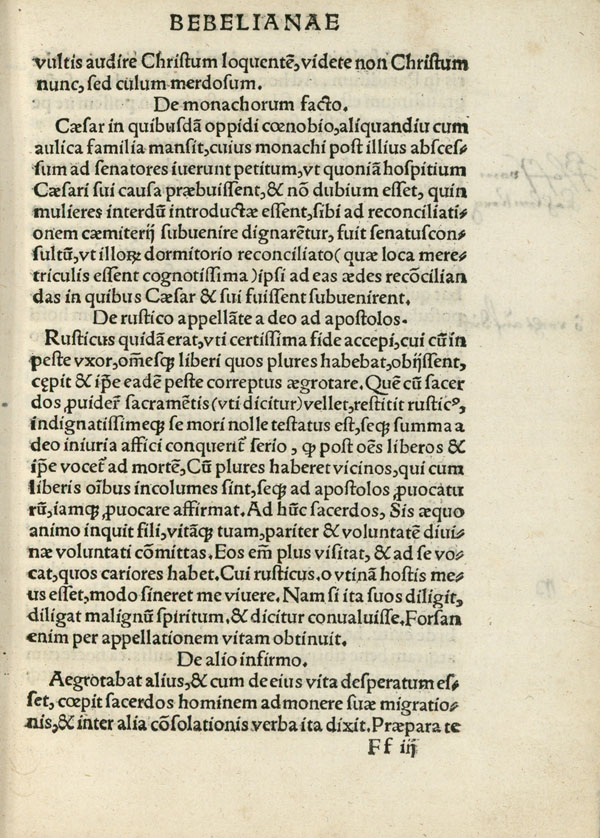 BEBELIANAE
vultis audire Christum loquentē, videte non Christum
nunc, sed culum merdosum.
De monachorum facto.
Cæsar in quibusdā oppidi cœnobio, aliquandiu cum
aulica familia mansit, cuius monachi post illius absces⸗
sum ad senatores iuerunt petitum, vt quoniā hospitium
Cæsari sui causa præbuissent, & nō dubium esset, quin
mulieres interdū introductæ essent, sibi ad reconciliati⸗
onem cæmiterij subuenire dignarētur, fuit senatuscon⸗
sultū, vt illoꝝ dormitorio reconciliato (quæ loca mere⸗
triculis essent cognotissima) ipsi ad eas ædes recōcilian
das in quibus Cæsar & sui fuissent subuenirent.
De rustico appellāte a deo ad apostolos.
Rusticus quidā erat, vti certissima fide accepi, cui cū in
peste vxor, om̄esqꝫ liberi quos plures habebat, obijssent,
cępit & ip̄e eadē peste correptus ægrotare. Quē cū sacer
dos ꝓuiderr̄ sacramētis (vti dicitur) vellet, restitit rusticꝰ,
indignatissimeqꝫ se mori nolle testatus est, seqꝫ summa a
deo iniuria affici conquerit̄ serio, ꝙ post oēs liberos &
ip̄e vocet̄ ad mortē, Cū plures haberet vicinos, qui cum
liberis oībus incolumes sint, seqꝫ ad apostolos ꝓuocatu
rū, iamqꝫ ꝓuocare affirmat. Ad hūc sacerdos, Sis æquo
animo inquit fili, vitāqꝫ tuam, pariter & voluntatē diui⸗
næ voluntati cōmittas. Eos em̄ plus visitat, & ad se vo⸗
cat, quos cariores habet. Cui rusticus. o vtinā hostis me⸗
us esset, modo sineret me viuere. Nam si ita suos diligit,
diligat malignū spiritum. & dicitur conualuisse. Forsan
enim per appellationem vitam obtinuit.
De alio infirmo.
Aegrotabat alius, & cum de eius vita desperatum es⸗
set, cœpit sacerdos hominem admonere suæ migratio⸗
nis, & inter alia cōsolationis verba ita dixit. Præpara te
Ff iij